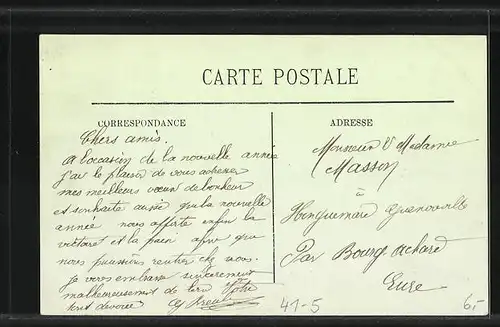 CARTE POSTALE
CORRESPONDANCE
Chers amis.
a l'occasion de la nouvelle année
j'ai le plaisir de vous adresser
mes meilleurs vœux de bonheur
et souhaite aussi que la nouvelle
année nous apporte enfin la
victoire et la paix afin que
nous puissions rentrer chez nous.
Je vous embrasse sincèrement
malheureusement de loin Votre
tout dévoué
ADRESSE
Monsieur & Madame
Masson
à
Honguemare Guenouville
Par Bourg Achard
Eure
41-5
6,-